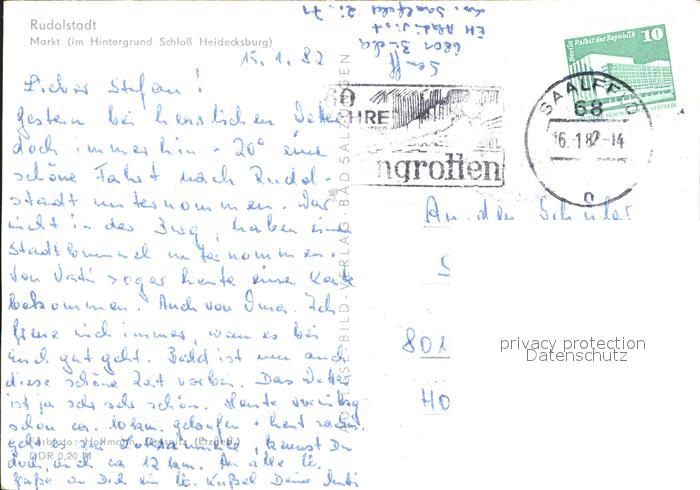 Rudolstadt
Markt (im Hintergrund Schloß Heidecksburg)
15.1.82
Lieber Stefan!
Gestern bei herrlichen Wetter
doch immerhin - 20° eine
schöne Fahrt nach Rudol-
stadt unternommen. War
nicht in der Burg, haben einen
Stadtbummel unternommen.
Von Vati sogar heute eine Karte
bekommen. Auch von Oma. Ich
freue mich immer, wenn es bei
Euch gut geht. Bald ist nun auch
diese schöne Zeit vorbei. Das Wetter
ist ja sehr sehr schön. Heute vormittag
schon ca. 10 km. gelaufen + heut
geht es zur, kennst Du
doch, auch ca 12 km. An alle lb.
Grüße an Dich ein lb. Kußel Deine Mutti
Farbfoto: Hoffmann, (Erzgeb.)
DDR 0,20 M
VERLAG · BAD SALZUNGEN
JAHRE
ngrotten
Berlin, Palast der Republik
10
SAALFELD
68
16.-1.82-14
a
An den Schüler
S
801
HO
privacy protection
Datenschutz